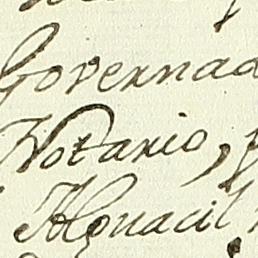 Governad
Notario,
Alguacil